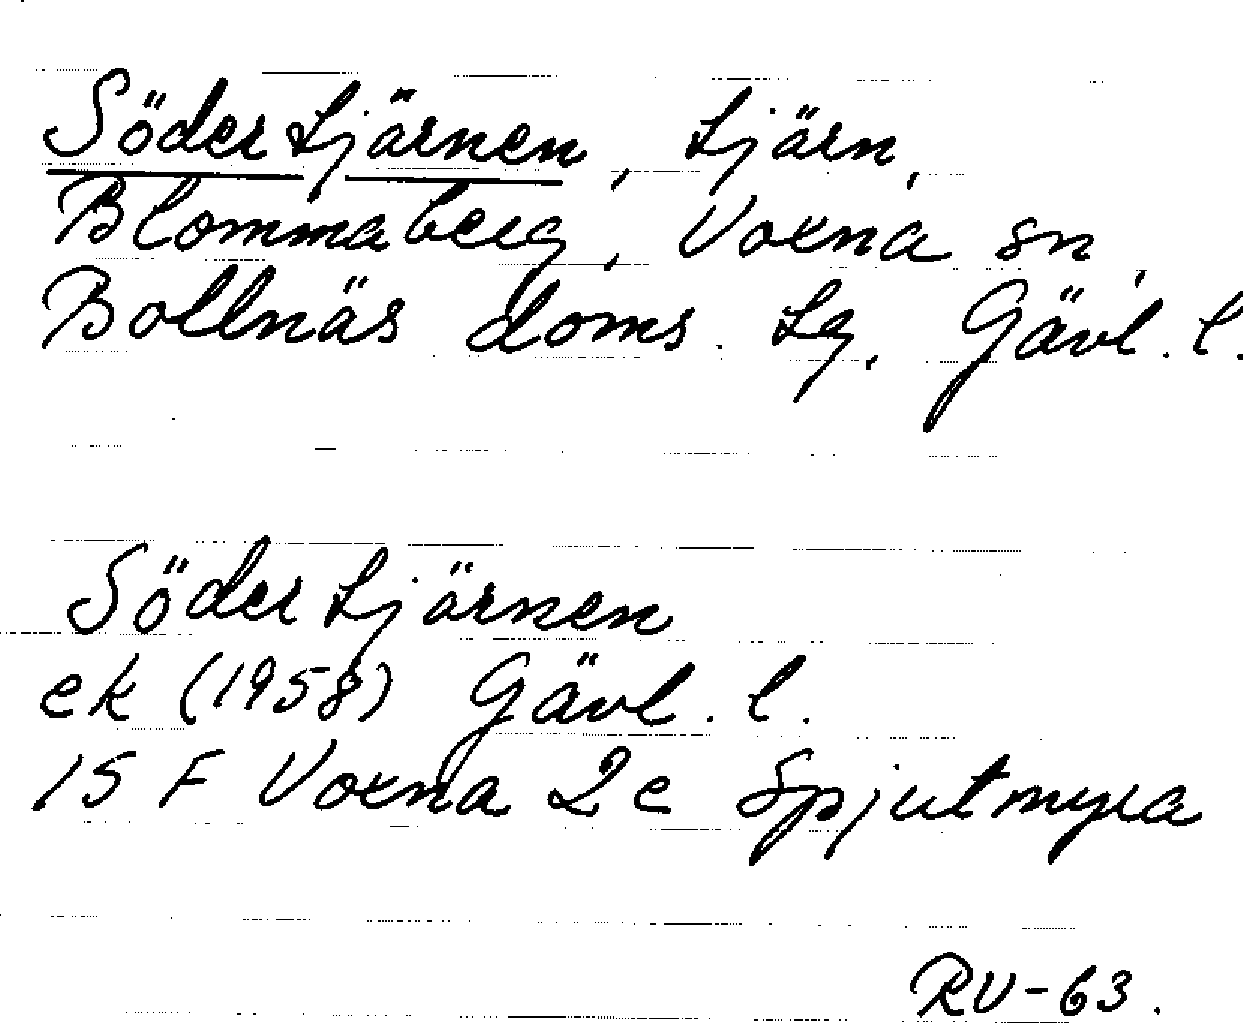 Södertjärnen, tjärn,
Blommaberg, Voxna sn,
Bollnäs doms. tg, Gävl. l.
Södertjärnen
ek (1958) Gävl. l.
15 F Voxna 2e Spjutmyra
RV-63.